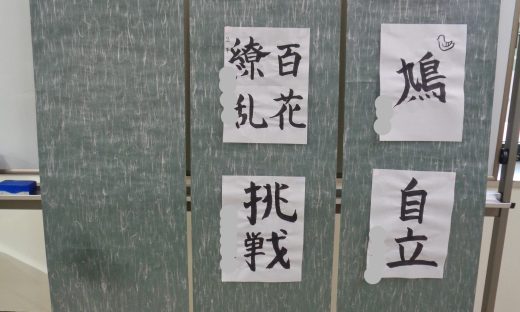 百花
繚乱
鳩
挑戦
自立